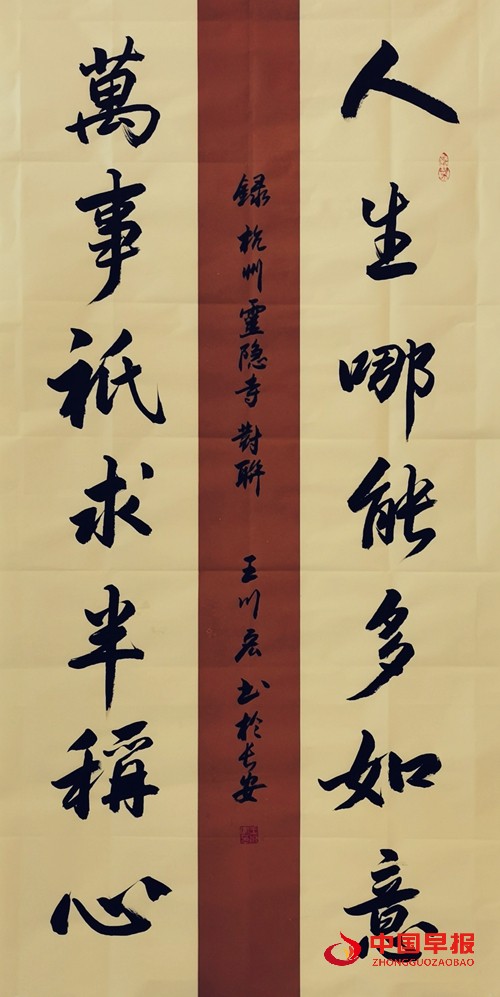 人生哪能多如意
萬事祇求半稱心
録杭州靈隐寺對聯
王川宏书於长安
中国早报
ZHONGGUOZAOBAO